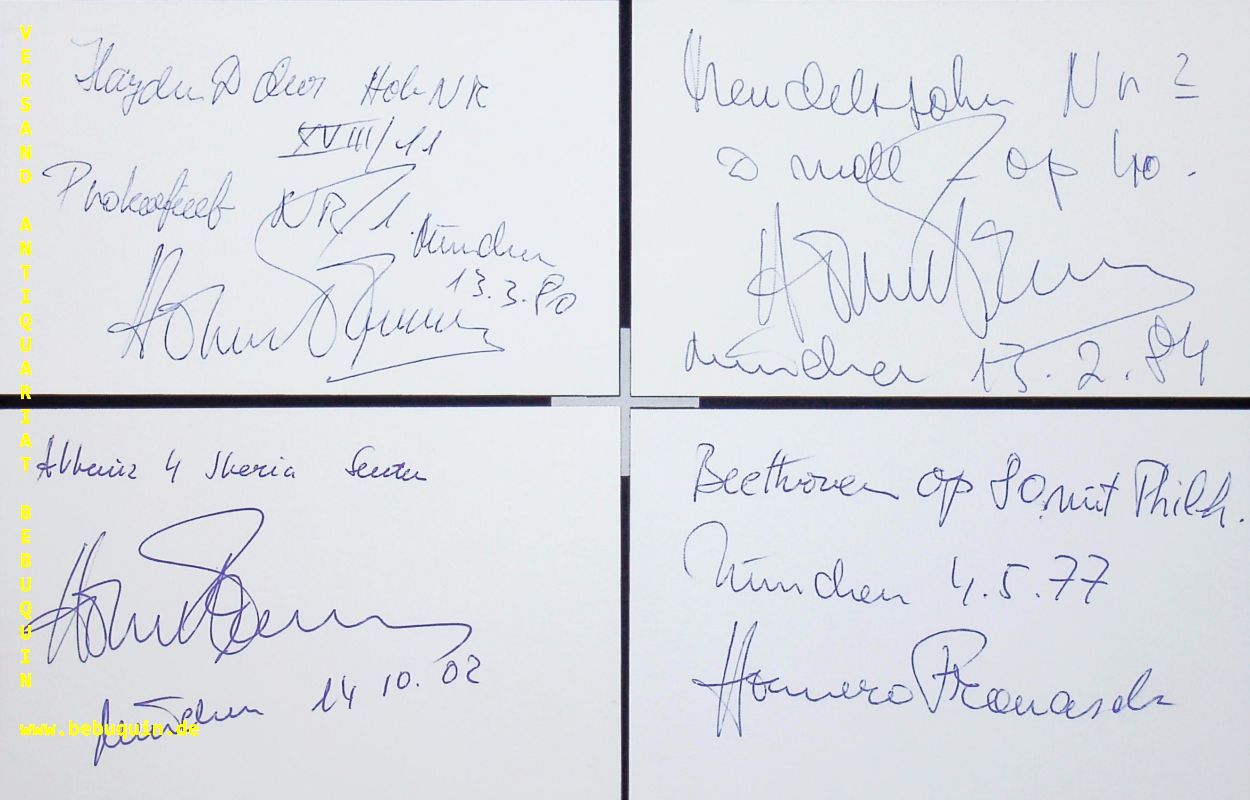 VERSAND ANTIQUARIAT BEBUQUIN
www.bebuquin.de
Haydn D dur Hob NR
XVIII/11
Prokofieff NR 1.
München
13.3.80
Mendelssohn Nr 2
D moll op 40.
München 13.2.84
Albeniz 4 Iberia
München 14 10. 02
Beethoven op 80 mit Philh.
München 4.5.77
Homero Francesch